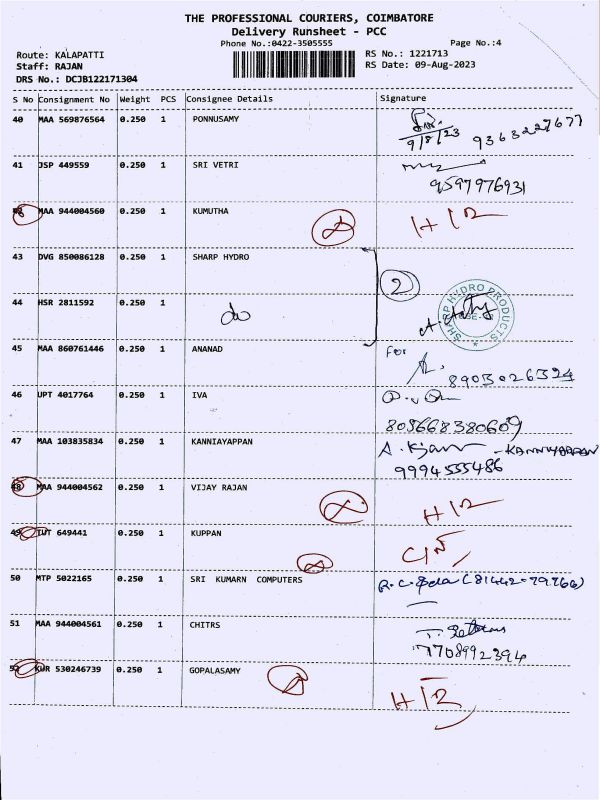 THE PROFESSIONAL COURIERS, COIMBATORE
Delivery Runsheet - PCC
Phone No.:0422-3505555 Page No.:4
Route: KALAPATTI RS No.: 1221713
Staff: RAJAN RS Date: 09-Aug-2023
DRS No.: DCJB122171304
S No Consignment No Weight PCS Consignee Details Signature
40 MAA 569876564 0.250 1 PONNUSAMY
9/8/23 9363227677
41 JSP 449559 0.250 1 SRI VETRI
9597976931
MAA 944004560 0.250 1 KUMUTHA
43 DVG 850086128 0.250 1 SHARP HYDRO
2
SHARP HYDRO PRODUCTS
44 HSR 2811592 0.250 1
do
45 MAA 860761446 0.250 1 ANANAD For
8903026324
46 UPT 4017764 0.250 1 IVA
805668380609
47 MAA 103835834 0.250 1 KANNIAYAPPAN - KANNIYAPPAN
9994555486
48 MAA 944004562 0.250 1 VIJAY RAJAN
49 TUT 649441 0.250 1 KUPPAN
50 MTP 5022165 0.250 1 SRI KUMARN COMPUTERS (81442-79766)
51 MAA 944004561 0.250 1 CHITRS
7708992394
52 KUR 530246739 0.250 1 GOPALASAMY